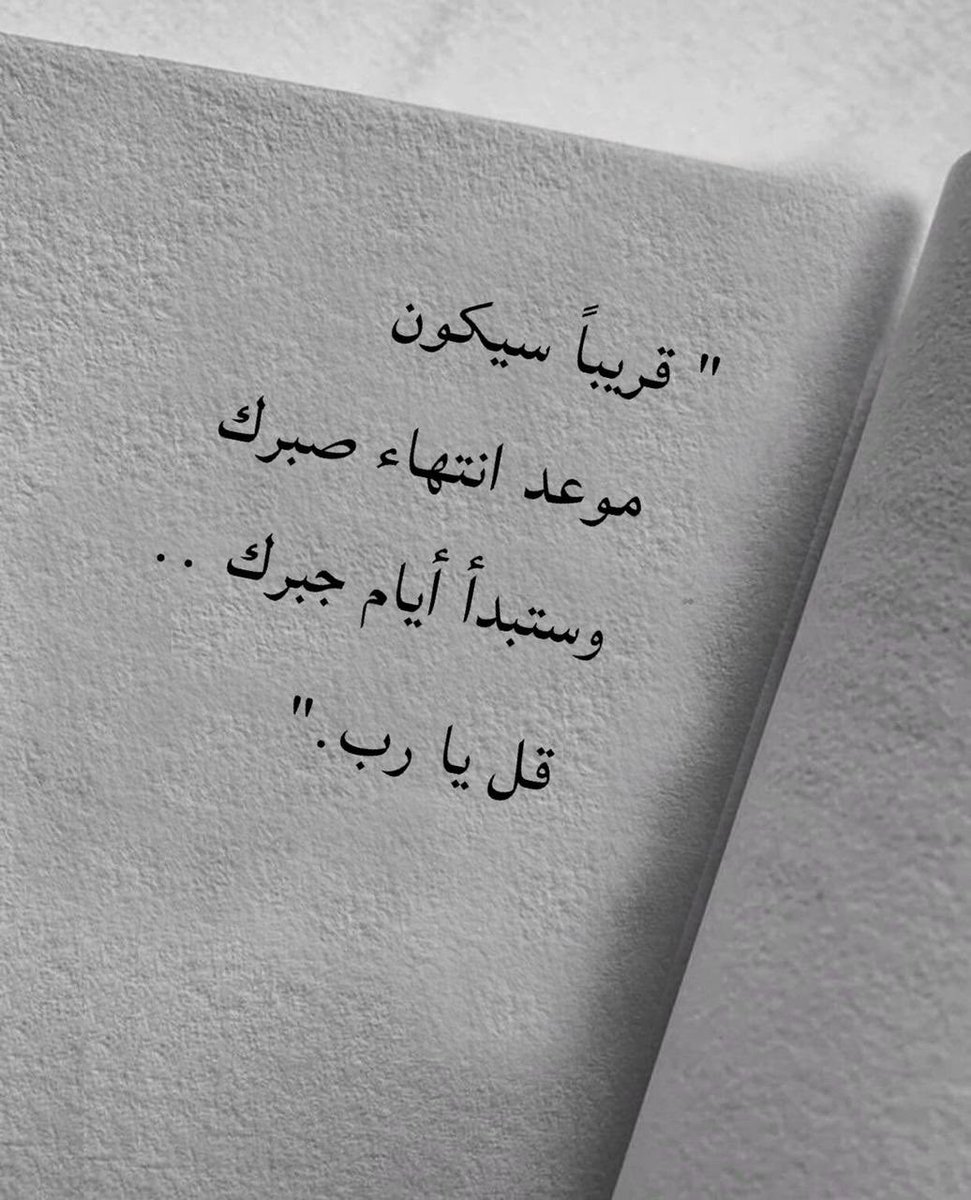 " قريباً سيكون
موعد انتهاء صبرك
وستبدأ أيام جبرك ..
قل يا رب."